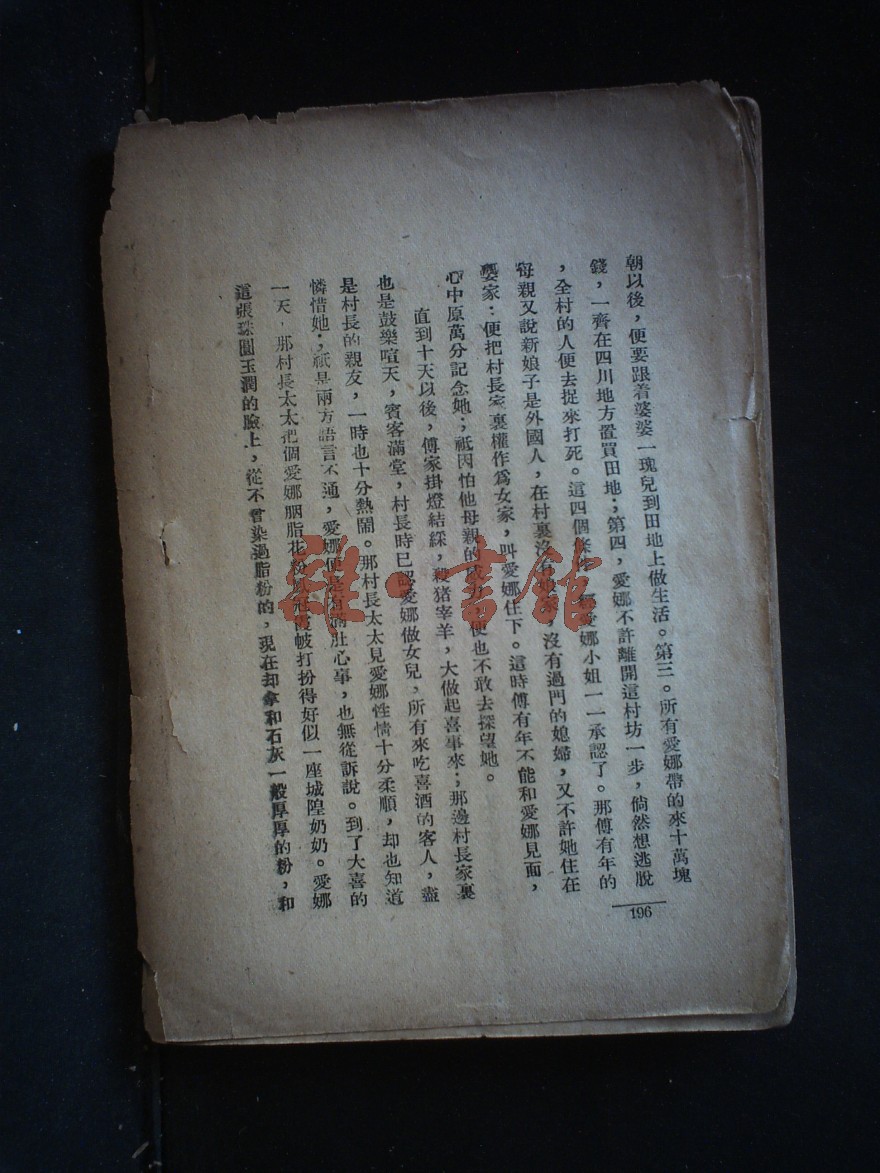 朝以後，便要跟着婆婆一塊兒到田地上做生活。第三。所有愛娜帶的來十萬塊
錢，一齊在四川地方置買田地；第四，愛娜不許離開這村坊一步，倘然想逃脫
，全村的人便去捉來打死。這四個條件，愛娜小姐一一承認了。那傅有年的
母親又說新娘子是外國人，在村裏沒有娘家，沒有過門的媳婦，又不許她住在
婆家：便把村長家裏權作爲女家，叫愛娜住下。這時傅有年不能和愛娜見面，
心中原萬分記念她；祇因怕他母親的威力，便也不敢去探望她。
直到十天以後，傅家掛燈結綵，殺猪宰羊，大做起喜事來；那邊村長家裏
也是鼓樂喧天，賓客滿堂，村長時已認愛娜做女兒，所有來吃喜酒的客人，盡
是村長的親友，一時也十分熱鬧。那村長太太見愛娜性情十分柔順，却也知道
憐惜她；祇是兩方語言不通，愛娜便是有滿肚心事，也無從訴說。到了大喜的
一天，那村長太太把個愛娜胭脂花粉鳳冠霞帔打扮得好似一座城隍奶奶。愛娜
這張珠圓玉潤的臉上，從不曾染過脂粉的，現在却拿和石灰一般厚厚的粉，和
196
雜·書館